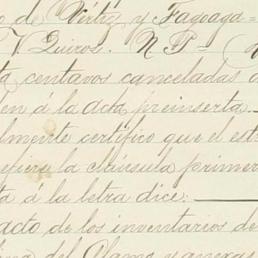 o de Pérez y Fagoaga =
V. Quiros. N P -
ta centavos canceladas
en á la Acta preinserta.
lmente certifico que el est
efiere la cláusula primer
ta á la letra dice:
acto de los inventarios de
del Clamo y anexas